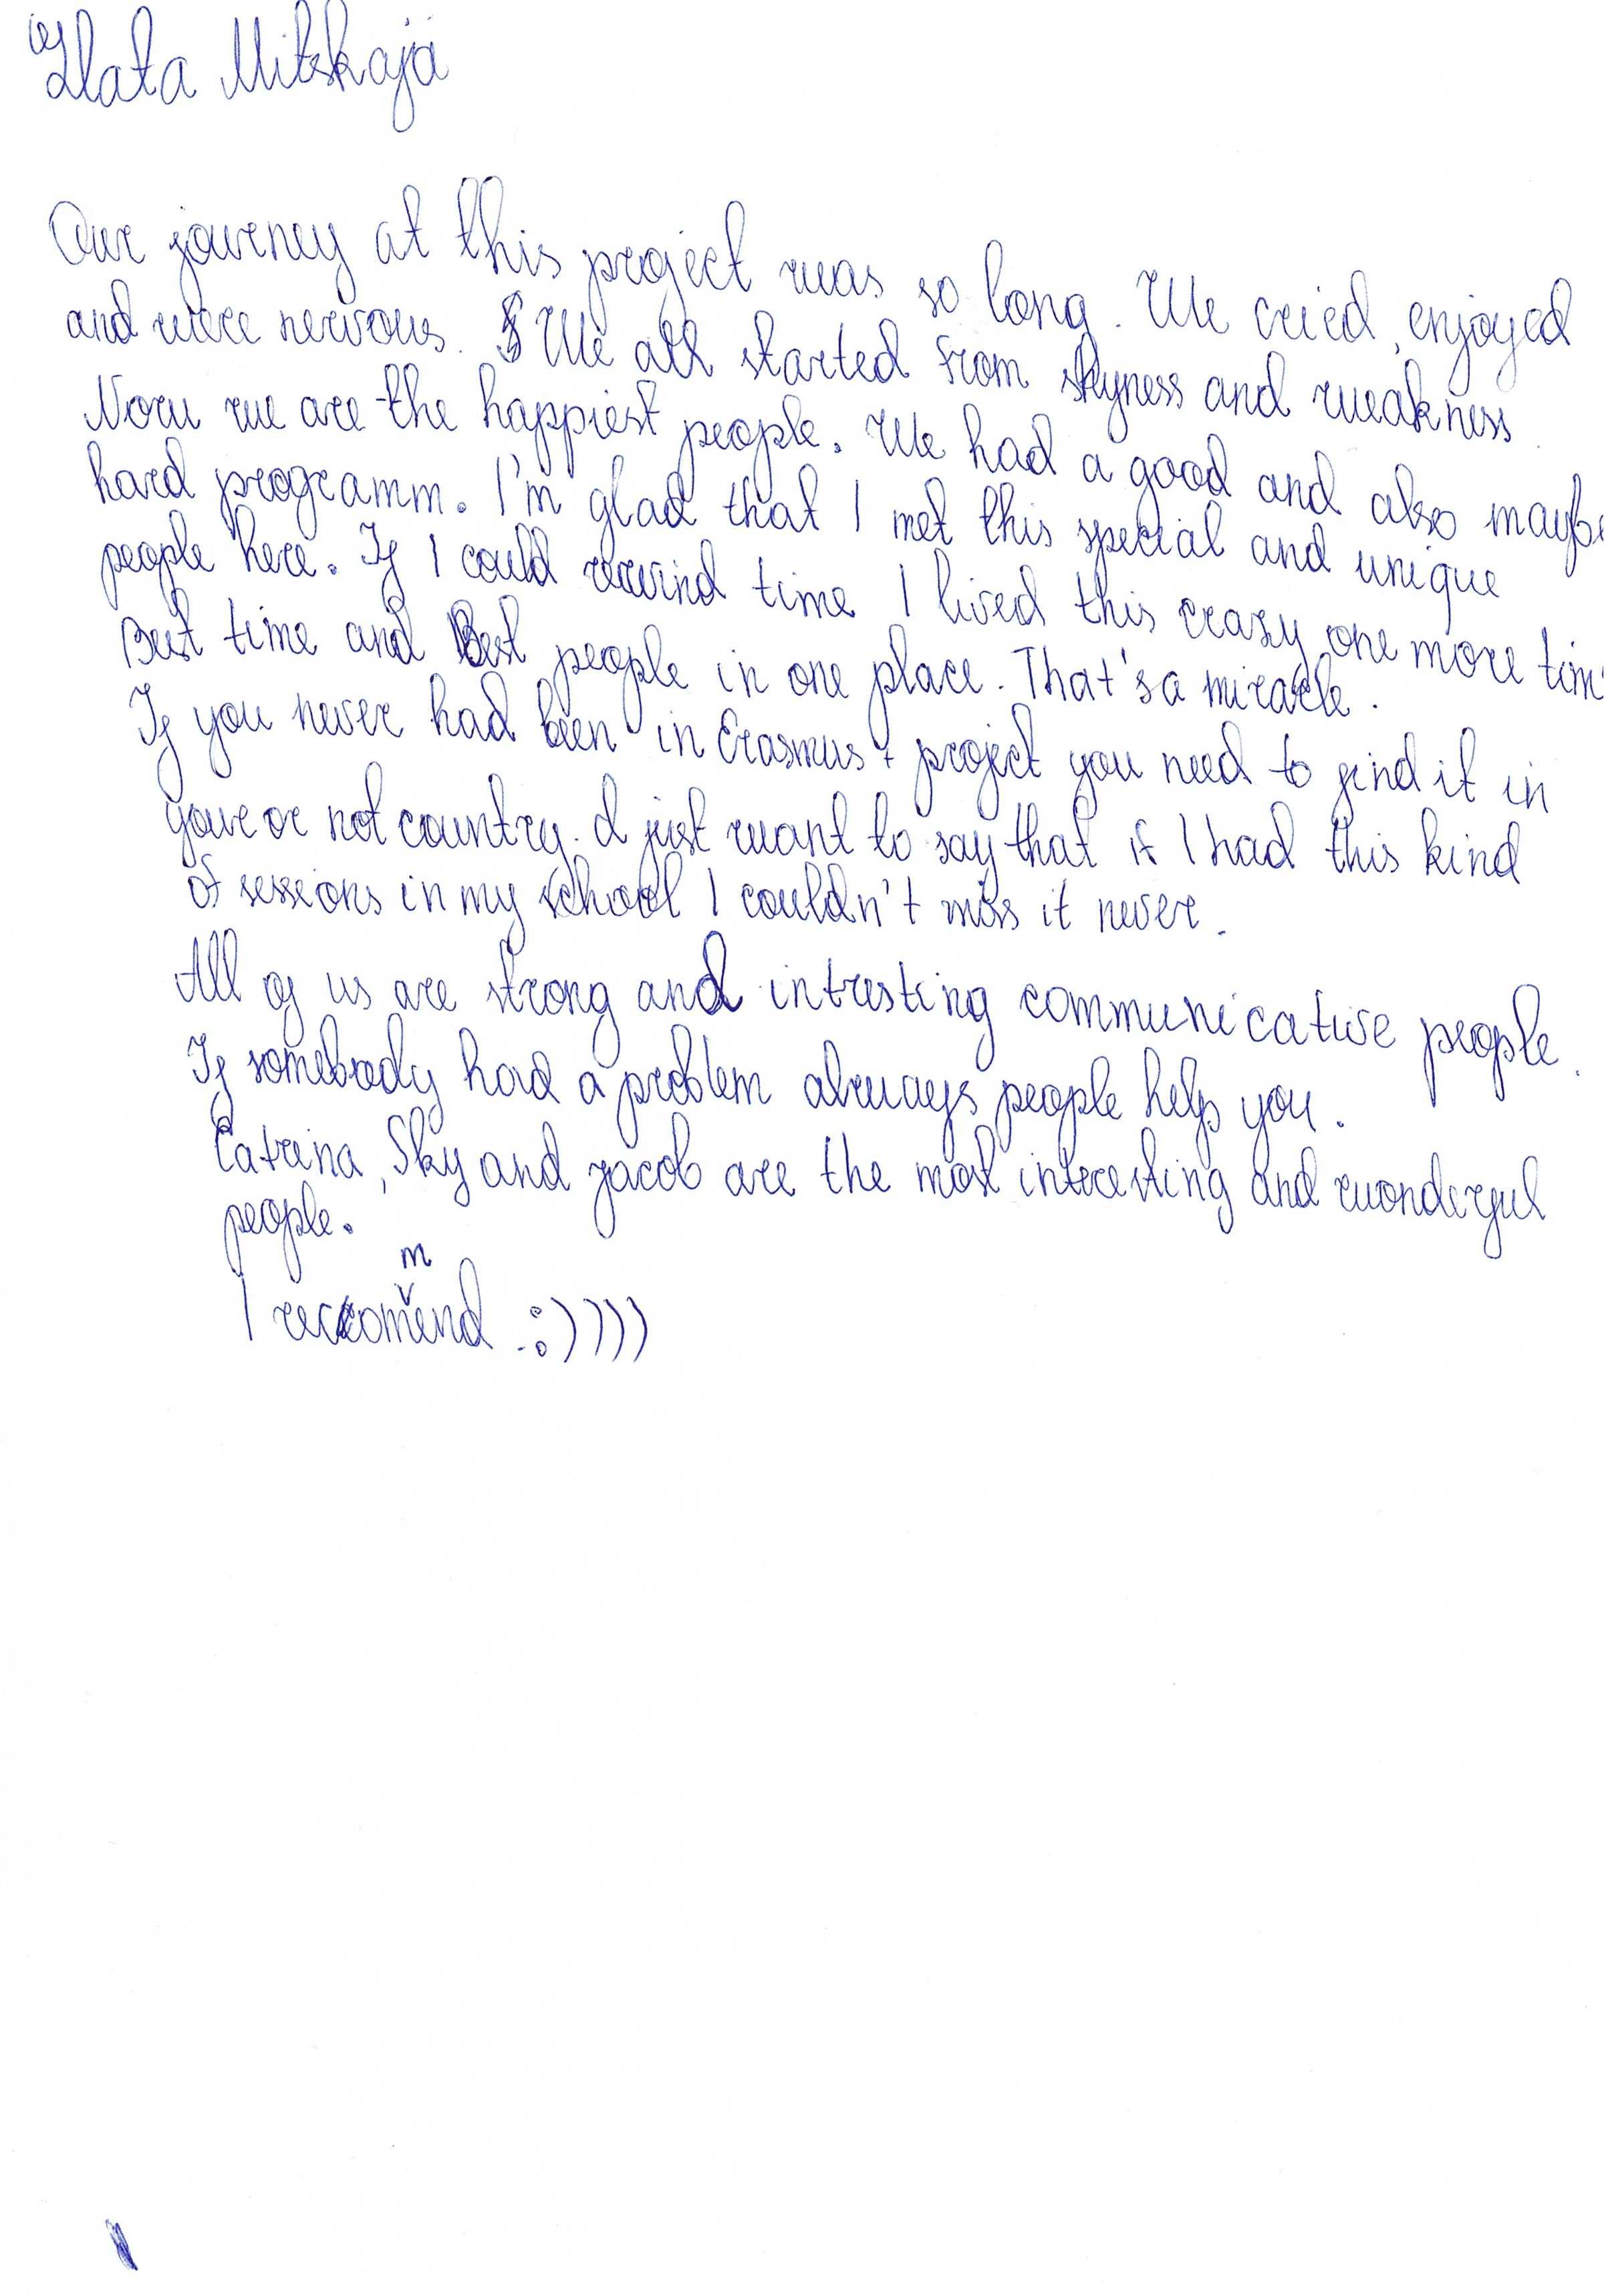 Zlata Mitskaja
Our journey at this project was so long. We cried, enjoyed
and were nervous. We all started from shyness and weakness.
Now we are the happiest people. We had a good and also maybe
hard programm. I'm glad that I met this special and unique
people here. If I could rewind time I lived this crazy one more tim
Best time and Best people in one place. That's a miracle.
If you never had been in Erasmus + project you need to find it in
your or not country. I just want to say that if I had this kind
of sessions in my school I couldn't miss it never.
All of us are strong and intresting communicative people.
If somebody had a problem always people help you.
Catrina, Sky and jacob are the most interesting and wonderful
people.
I recommend :))))